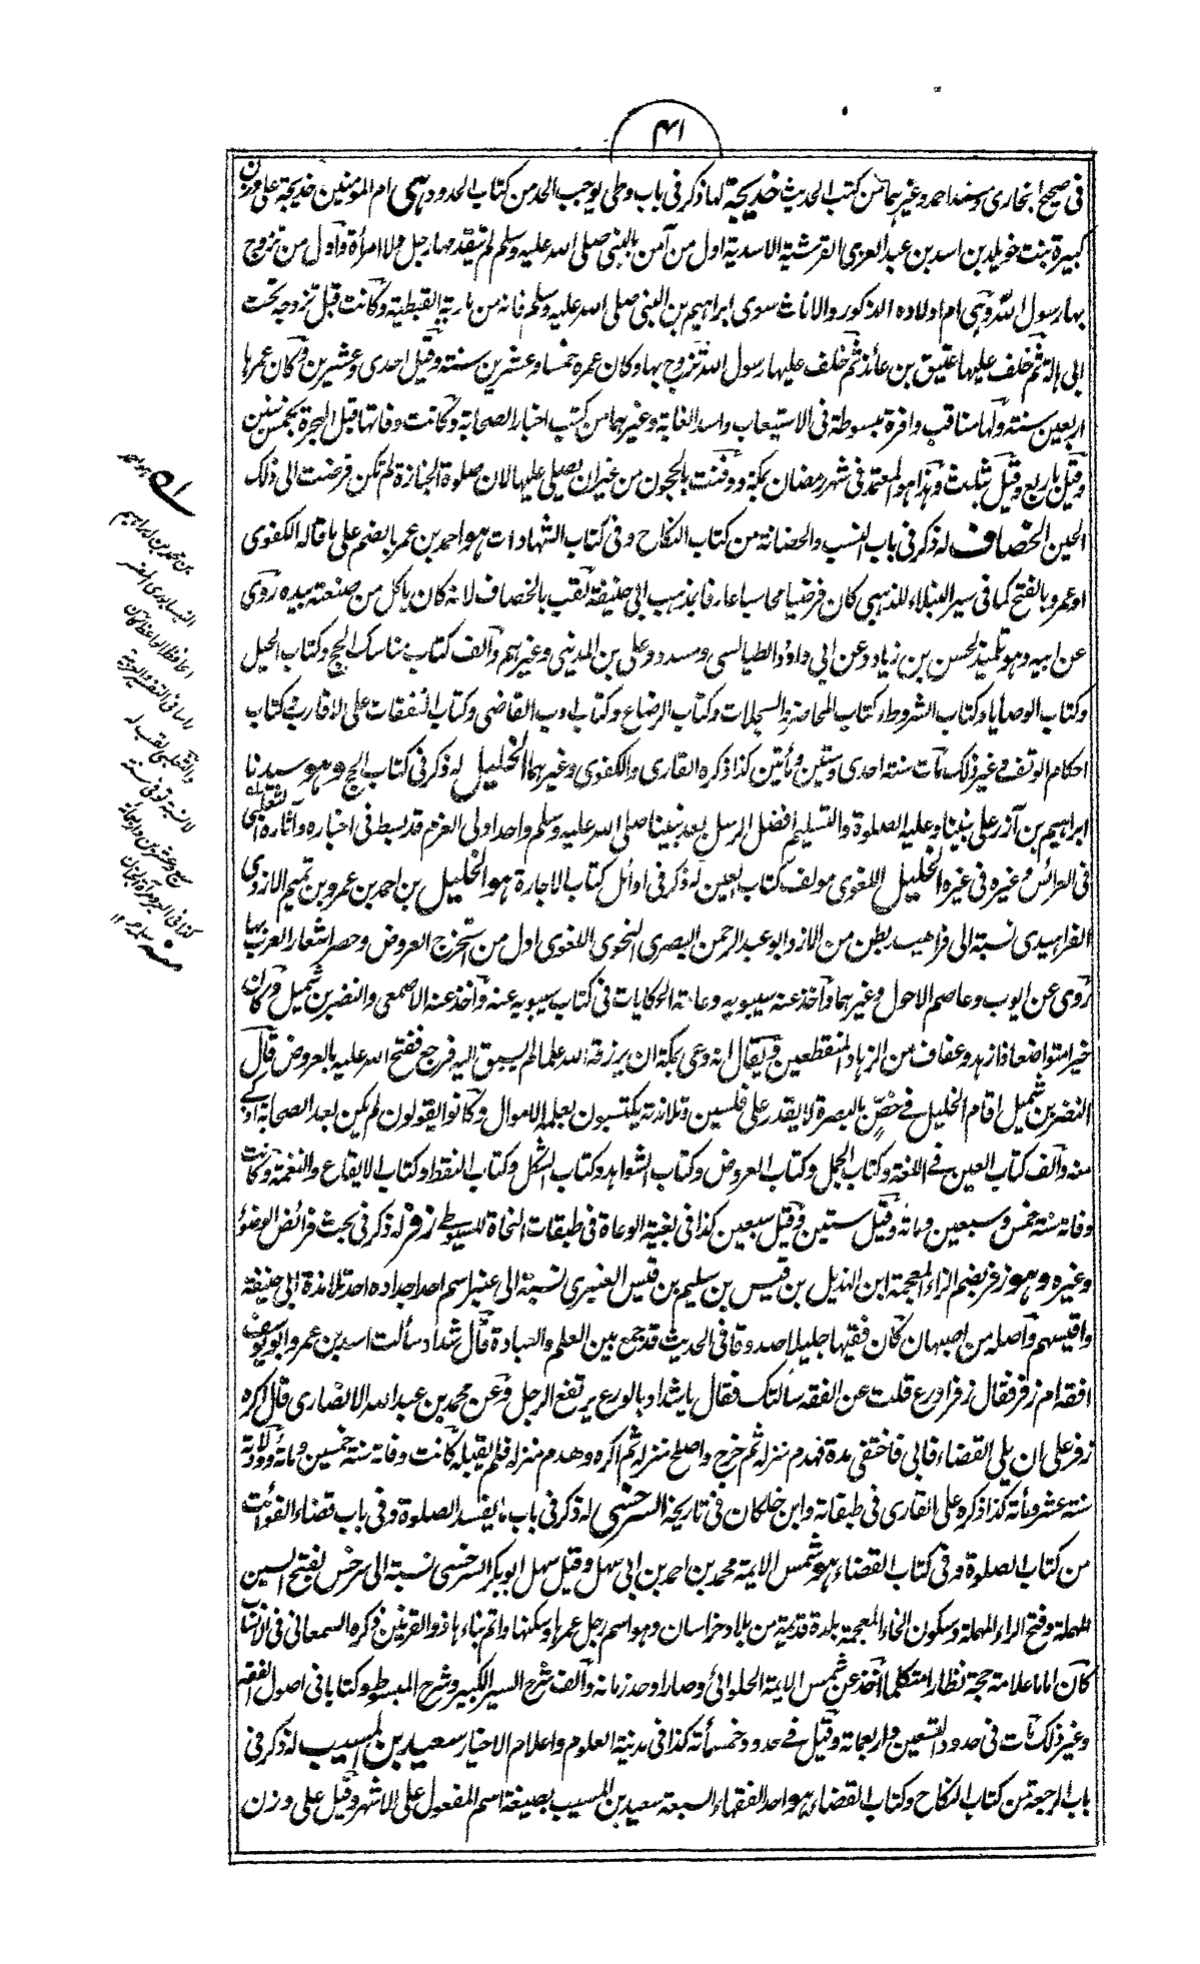 ۴۱
فى صحيح البخارى ومسند احمد وغيرهما من كتب الحديث خديجة لها ذكر فى باب وطى يوجب الحد من كتاب الحدود هى ام المؤمنين خديجة على وزن
كبيرة بنت خويلد بن اسد بن عبد العزى القرشية الاسدية اول من آمن بالنبى صلى الله عليه وسلم لم يتقدمها رجل ولا امرأة واول من تزوج
بها رسول الله وهى ام اولاده الذكور والاناث سوى ابراهيم بن النبى صلى الله عليه وسلم فانه من مارية القبطية وكانت قبل تزوجه تحت
ابى هالة ثم خلف عليها عتيق بن عائذ ثم خلف عليها رسول الله تزوج بها وكان عمره خمسا وعشرين سنة وقيل احدى وعشرين وكان عمرها
اربعين سنة ولها مناقب وافرة مبسوطة فى الاستيعاب واسد الغابة وغيرهما من كتب اخبار الصحابة وكانت وفاتها قبل الهجرة بخمس سنين
وقيل باربع وقيل بثلث وهذا هو المعتمد فى شهر رمضان بمكة ودفنت بالحجون من غير ان يصلى عليها لان صلوة الجنازة لم تكن فرضت الى ذلك
الحين الخصاف له ذكر فى باب النسب والحضانة من كتاب النكاح وفى كتاب الشهادات هو احمد بن عمر بالضم على ما قاله الكفوى
او عمرو بالفتح كما فى سير النبلاء للذهبى كان فرضيا محاسبا عارفا بمذهب ابى حنيفة لقب بالخصاف لانه كان ياكل من صنعته بيده روى
عن ابيه وهو تلميذ لحسن بن زياد وعن ابى داود الطيالسى ومسدد وعلى بن المدينى وغيرهم وآلف كتاب مناسك الحج وكتاب الحيل
وكتاب الوصايا وكتاب الشروط وكتاب المحاضر والسجلات وكتاب الرضاع وكتاب ادب القاضى وكتاب النفقات على الاقارب وكتاب
احكام الوقف وغير ذلك مات سنة احدى وستين ومأتين كذا ذكره القارى والكفوى وغيرهما الخليل له ذكر فى كتاب الحج وهو سيدنا
ابراهيم بن آزر على نبينا وعليه الصلوة والتسليم افضل الرسل بعد نبينا صلى الله عليه وسلم واحد اولى العزم قد بسط فى اخباره وآثاره الثعلبى
فى العرائس وغيره فى غيره الخليل اللغوى مولف كتاب العين له ذكر فى اوائل كتاب الاجارة هو الخليل بن احمد بن عمرو بن تميم الازدى
الفراهيدى نسبة الى فراهيد بطن من الازد ابو عبد الرحمن البصرى النحوى اللغوى اول من استخرج العروض وحصر اشعار العرب بها
روى عن ايوب وعاصم الاحول وغيرهما وآخذ عنه سيبويه وعامة الحكايات فى كتاب سيبويه عنه وآخذ عنه الاصمعى والنضر بن شميل وكان
خيرا متواضعا ذا زهد وعفاف من الزهاد المنقطعين ويقال انه دعى بمكة ان يرزقه الله علما لم يسبق اليه فرجع ففتح الله عليه بالعروض قال
النضر بن شميل اقام الخليل فى خص بالبصرة لا يقدر على فلسين وتلامذته يكتسبون بعلمه الاموال وكانوا يقولون لم يكن بعد الصحابة اذكى
منه وآلف كتاب العين فى اللغة وكتاب الجمل وكتاب العروض وكتاب الشواهد وكتاب الشكل وكتاب النقط وكتاب الايقاع والنغمة وكانت
وفاته سنة خمس وسبعين ومائة وقيل ستين وقيل سبعين كذا فى بغية الوعاة فى طبقات النحاة للسيوطى زفر له ذكر فى بحث فرائض الوضوء
وغيره وهو زفر بضم الزاء المعجمة ابن الهذيل بن قيس بن سليم بن قيس العنبرى نسبة الى عنبر اسم احد اجداده احد تلامذة ابى حنيفة
واقيسهم وآصله من اصبهان كان فقيها جليلا صدوقا فى الحديث قد جمع بين العلم والعبادة قال شداد سألت اسد بن عمر وابو يوسف
افقه ام زفر فقال زفر اورع قلت عن الفقه سألتك فقال يا شداد بالورع يرتفع الرجل وعن محمد بن عبد الله الانصارى قال اكره
زفر على ان يلى القضاء فابى فاختفى مدة فهدم منزله ثم خرج واصلح منزله ثم اكره وهدم منزله فلم يقبله كانت وفاته سنة خمسين ومائة وولادته
سنة عشر ومأئة كذا ذكره على القارى فى طبقاته وابن خلكان فى تاريخه السرخسى له ذكر فى باب ما يفسد الصلوة وفى باب قضاء الفوائت
من كتاب الصلوة وفى كتاب القضاء هو شمس الايمة محمد بن احمد بن ابى سهل وقيل سهل ابو بكر السرخسى نسبة الى سرخس بفتح السين
المهملة وفتح الراء المهملة وسكون الخاء المعجمة بلدة قديمة من بلاد خراسان وهو اسم رجل عمرها وسكنها واتم بناءها ذو القرنين ذكره السمعانى فى الانساب
كان اماما علامة حجة نظارا متكلما آخذ عن شمس الايمة الحلوائى وصار اوحد زمانه وآلف شرح السير الكبير وشرح المبسوط وكتابا فى اصول الفقه
وغير ذلك مات فى حدود التسعين واربعمائة وقيل فى حدود خمسمأئة كذا فى مدينة العلوم واعلام الاخيار سعيد بن المسيب له ذكر فى
باب الرجعة من كتاب النكاح وكتاب القضاء هو احد الفقهاء السبعة سعيد بن المسيب بصيغة اسم المفعول على الاشهر وقيل على وزن
هو احمد
بن محمد بن ابراهيم
النيسابورى المفسر
الحافظ الواعظ كان
راسا فى التفسير والعربية
والثعلبى لقب له
لا نسبة توفى سنة
سبع وعشرين واربعمائة
كذا فى مرآة الجنان
منه ۱۲